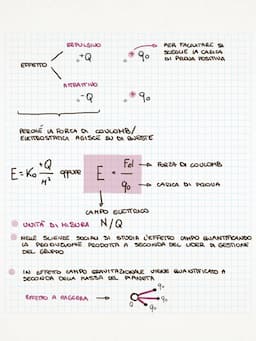 EFFETTO
REPULSIVO
+Q
q₀
PER FACILITARE SI
SCEGLIE LA CARICA
DI PROVA POSITIVA
ATTRATTIVO
-Q
q₀
PERCHÉ LA FORZA DI COULOMB/
ELETTROSTATICA AGISCE SU DI QUESTE
E = K₀ +Q/r² oppure E = Fel/q₀
FORZA DI COULOMB
CARICA DI PROVA
CAMPO ELETTRICO
UNITÀ DI MISURA N/Q
NELLE SCIENZE SOCIALI SI STUDIA L'EFFETTO CAMPO QUANTIFICANDO
LA PRODUZIONE PRODOTTA A SECONDA DEL LIDER DI GESTIONE
DEL GRUPPO
IN EFFETTO CAMPO GRAVITAZIONALE VIENE QUANTIFICATO A
SECONDA DELLA MASSA DEL PIANETA
EFFETTO A RAGGERA
Q
q₀
q₀
q₀